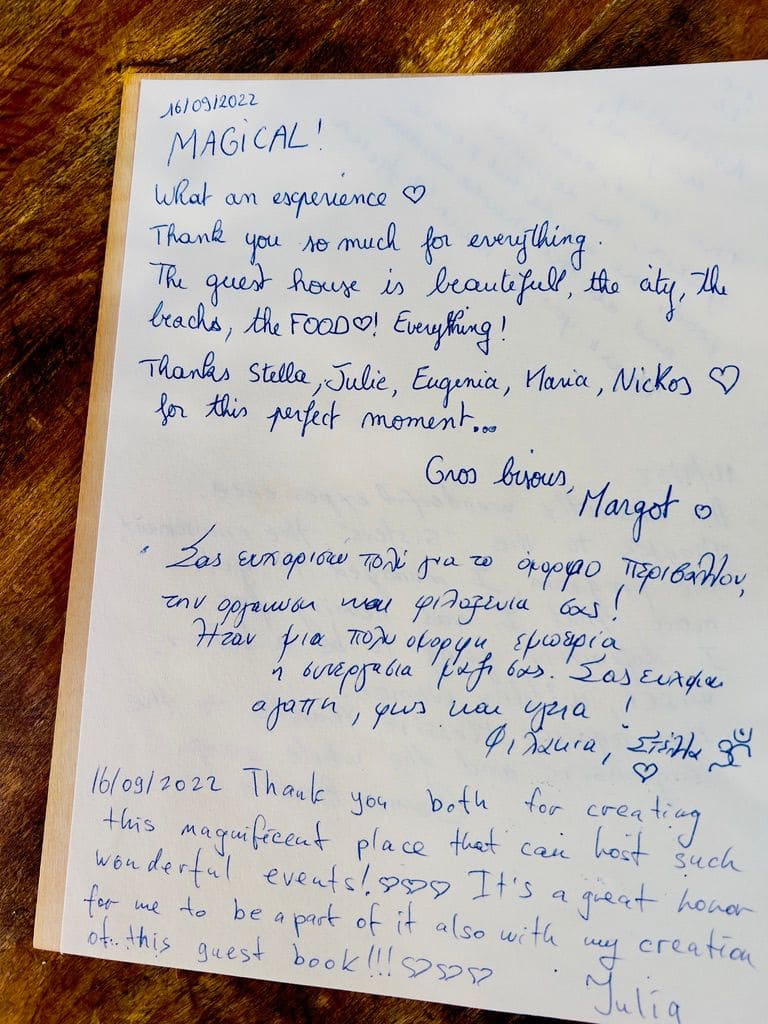 16/09/2022
MAGICAL!
What an esxperience ♡
Thank you so much for everything.
The guest house is beautefull, the city, the
beachs, the FOOD♡! Everything!
Thanks Stella, Julie, Eugenia, Maria, Nickos ♡
for this perfect moment...
Gros bisous,
Margot ♡
Σας ευχαριστώ πολύ για το όμορφο περιβάλλον,
την οργανωση και φιλοξενια σας!
Ήταν μια πολυ ομορφη εμπειρία
η συνεργασια μαζι σας. Σας ευχομαι
αγαπη, φως και υγεια!
Φιλακια, Στέλλα ॐ
♡
16/09/2022 Thank you both for creating
this magnificent place that can host such
wonderful events!♡♡♡ It's a great honor
for me to be a part of it also with my creation
of this guest book!!! ♡♡♡
Julia